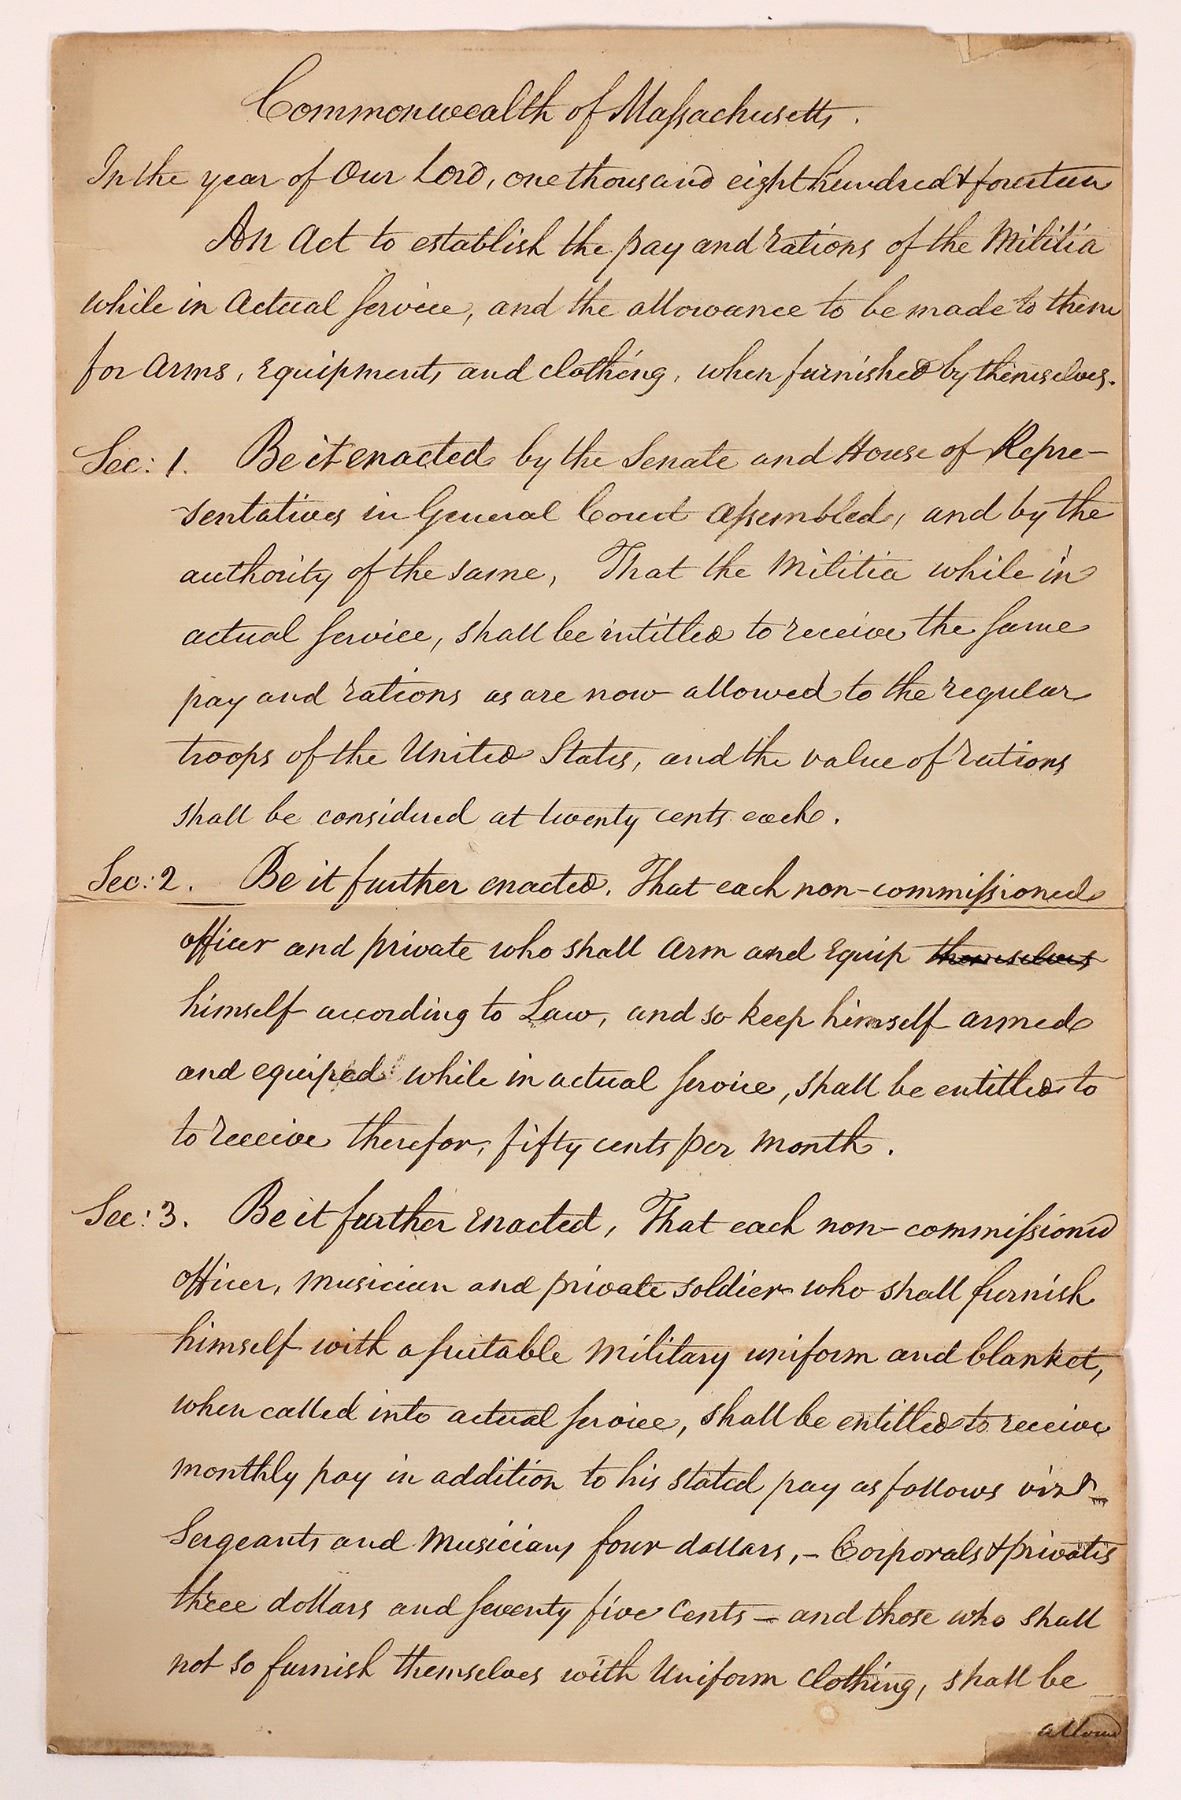 Commonwealth of Massachusetts.
In the year of Our Lord, one thousand eight hundred & fourteen
An Act to establish the pay and rations of the Militia
while in Actual Service, and the allowance to be made to them
for Arms, Equipments and Clothing, when furnished by themselves.
Sec: 1. Be it enacted by the Senate and House of Repre-
sentatives in General Court Assembled, and by the
authority of the same, That the Militia while in
actual Service, shall be intitled to receive the same
pay and rations as are now allowed to the regular
troops of the United States, and the value of rations
shall be considered at twenty cents each.
Sec: 2. Be it further enacted. That each non-commissioned
officer and private who shall Arm and Equip themselves
himself according to Law, and so keep himself armed
and equiped while in actual Service, shall be entitled to
to receive therefor, fifty cents per Month.
Sec: 3. Be it further Enacted, That each non-commissioned
officer, Musician and private soldier who shall furnish
himself with a suitable Military uniform and blanket,
when called into actual Service, shall be entitled to receive
monthly pay in addition to his stated pay as follows vizt
Sergeants and Musicians four dollars,- Corporals & privates
three dollars and Seventy five Cents - and those who shall
not so furnish themselves with Uniform Clothing, shall be
allowed